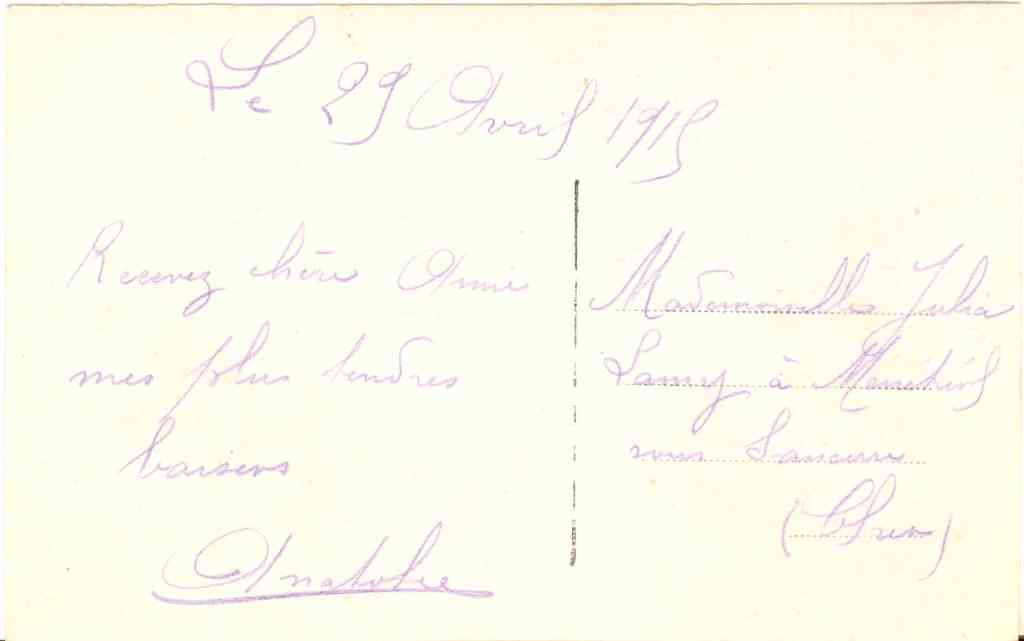 Le 29 Avril 1915
Recevez chère Amie
mes plus tendres
baisers
Anatolie
Mademoiselle Julia
Lamy à Menétréol
sous Sancerre
(Cher)